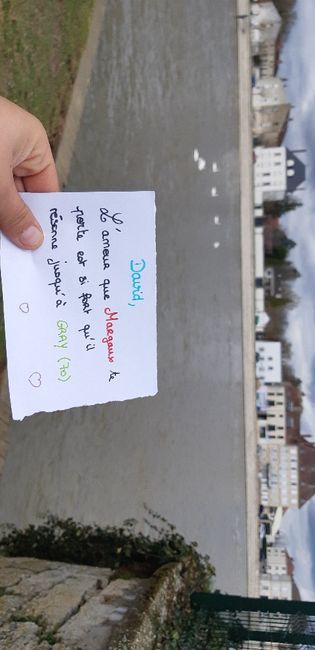 David,
L'amour que Margaux te
porte est si fort qu'il
résonne jusqu'à GRAY (70)